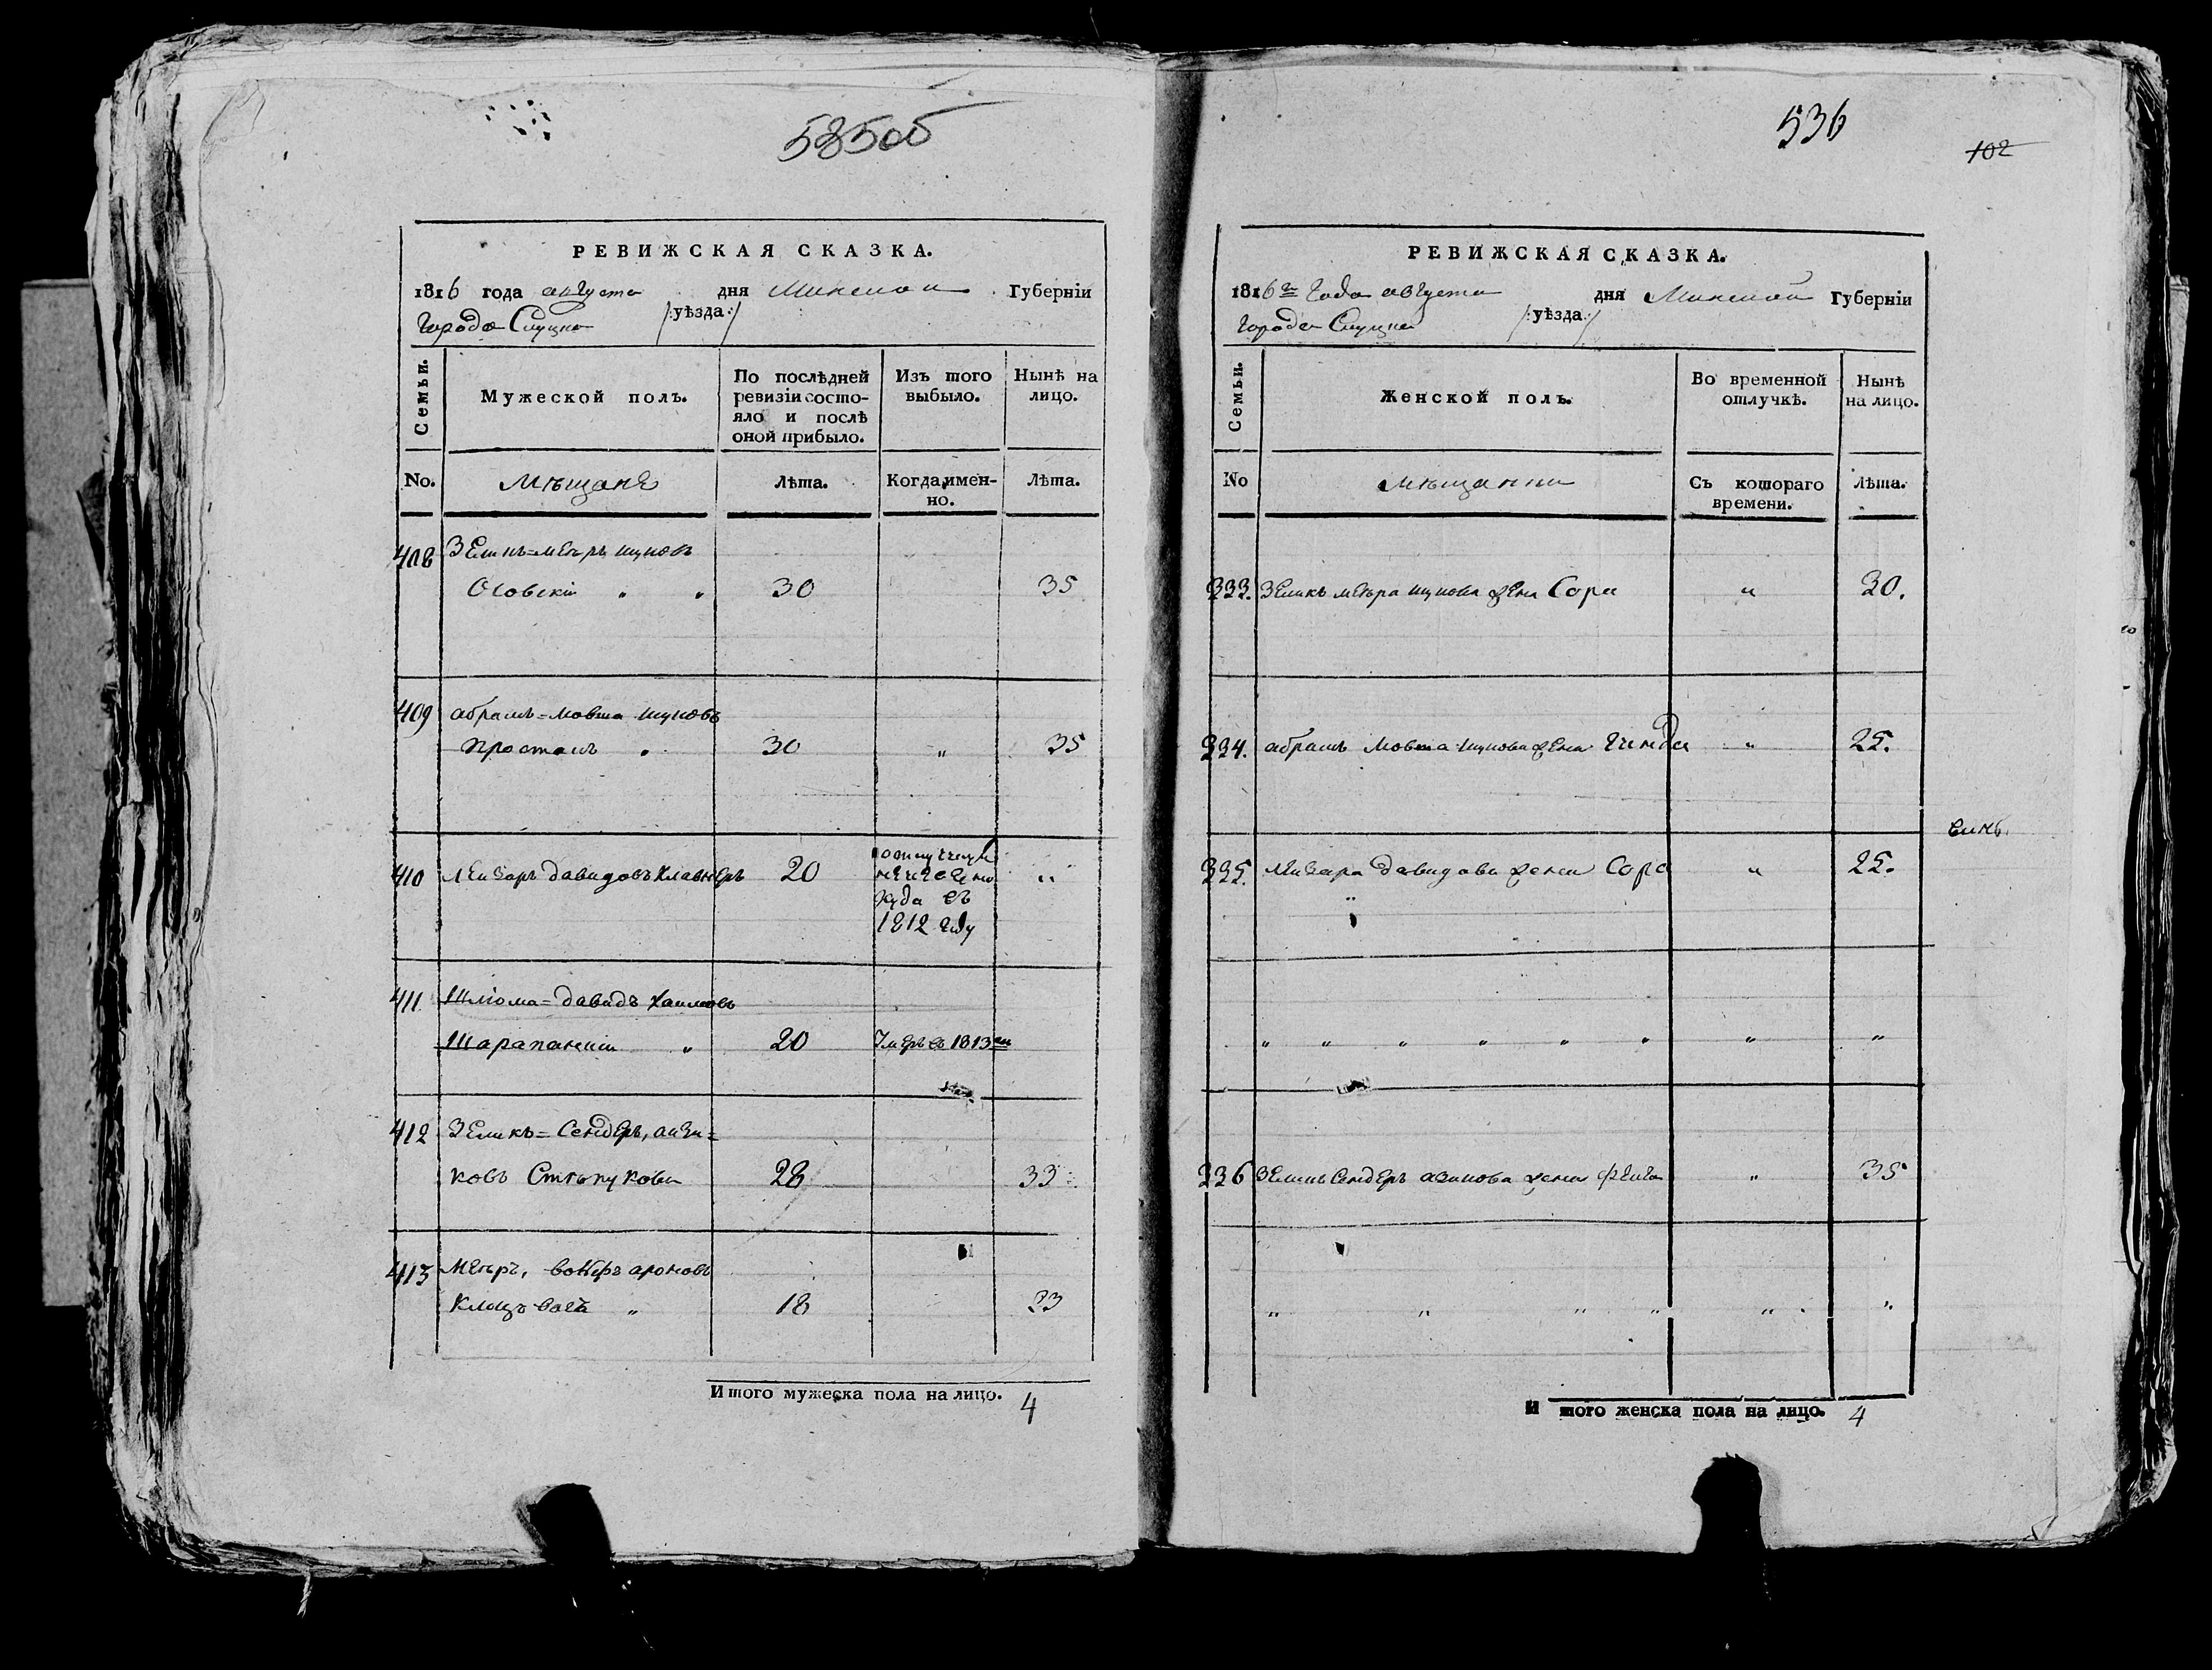 585об
РЕВИЖСКАЯ СКАЗКА.
1816 года августа дня Минской Губерніи
Города Слуцка /:уѣзда:/
Семьи.
Мужеской полъ.
По послѣдней ревизіи состо-
яло и послѣ
оной прибыло.
Изъ того
выбыло.
Нынѣ на
лицо.
No.
Мѣщане
Лѣта.
Когда имен-
но.
Лѣта.
408 Зеликъ=мееръ ицковъ
Осовскій " " 30 35
409 абрамъ=мовша ицковъ
простакъ " 30 " 35
410 Лейзаръ давидовъ Клавнеръ 20 "
неизвестно
куда въ
1812 году
411 Шліома=давидъ хаимовъ
Шарапанскій " 20 Умеръ въ 1813м
412 Зеликъ=Сендеръ, аизи=
ковъ 28 33
413 Мееръ, вольфъ ароновъ
" 18 23
Итого мужеска пола на лицо. 4
536
102
РЕВИЖСКАЯ СКАЗКА.
1816го Года августа дня Минской Губерніи
Города Слуцка /:уѣзда:/
Семьи.
Женской полъ.
Во временной
отлучкѣ.
Нынѣ
на лицо.
No
мѣщанки
Съ котораго
времени.
Лѣта.
333. Зеликъ меера ицкова жена Сора " 30.
334. абрамъ мовша ицкова жена Гинда " 25.
335. Лейзара давидова жена Сора " 25.
" " " " " " " "
336 Зеликъ Сендеръ аизикова жена фейга " 35
" " " " " "
Итого женска пола на лицо. 4